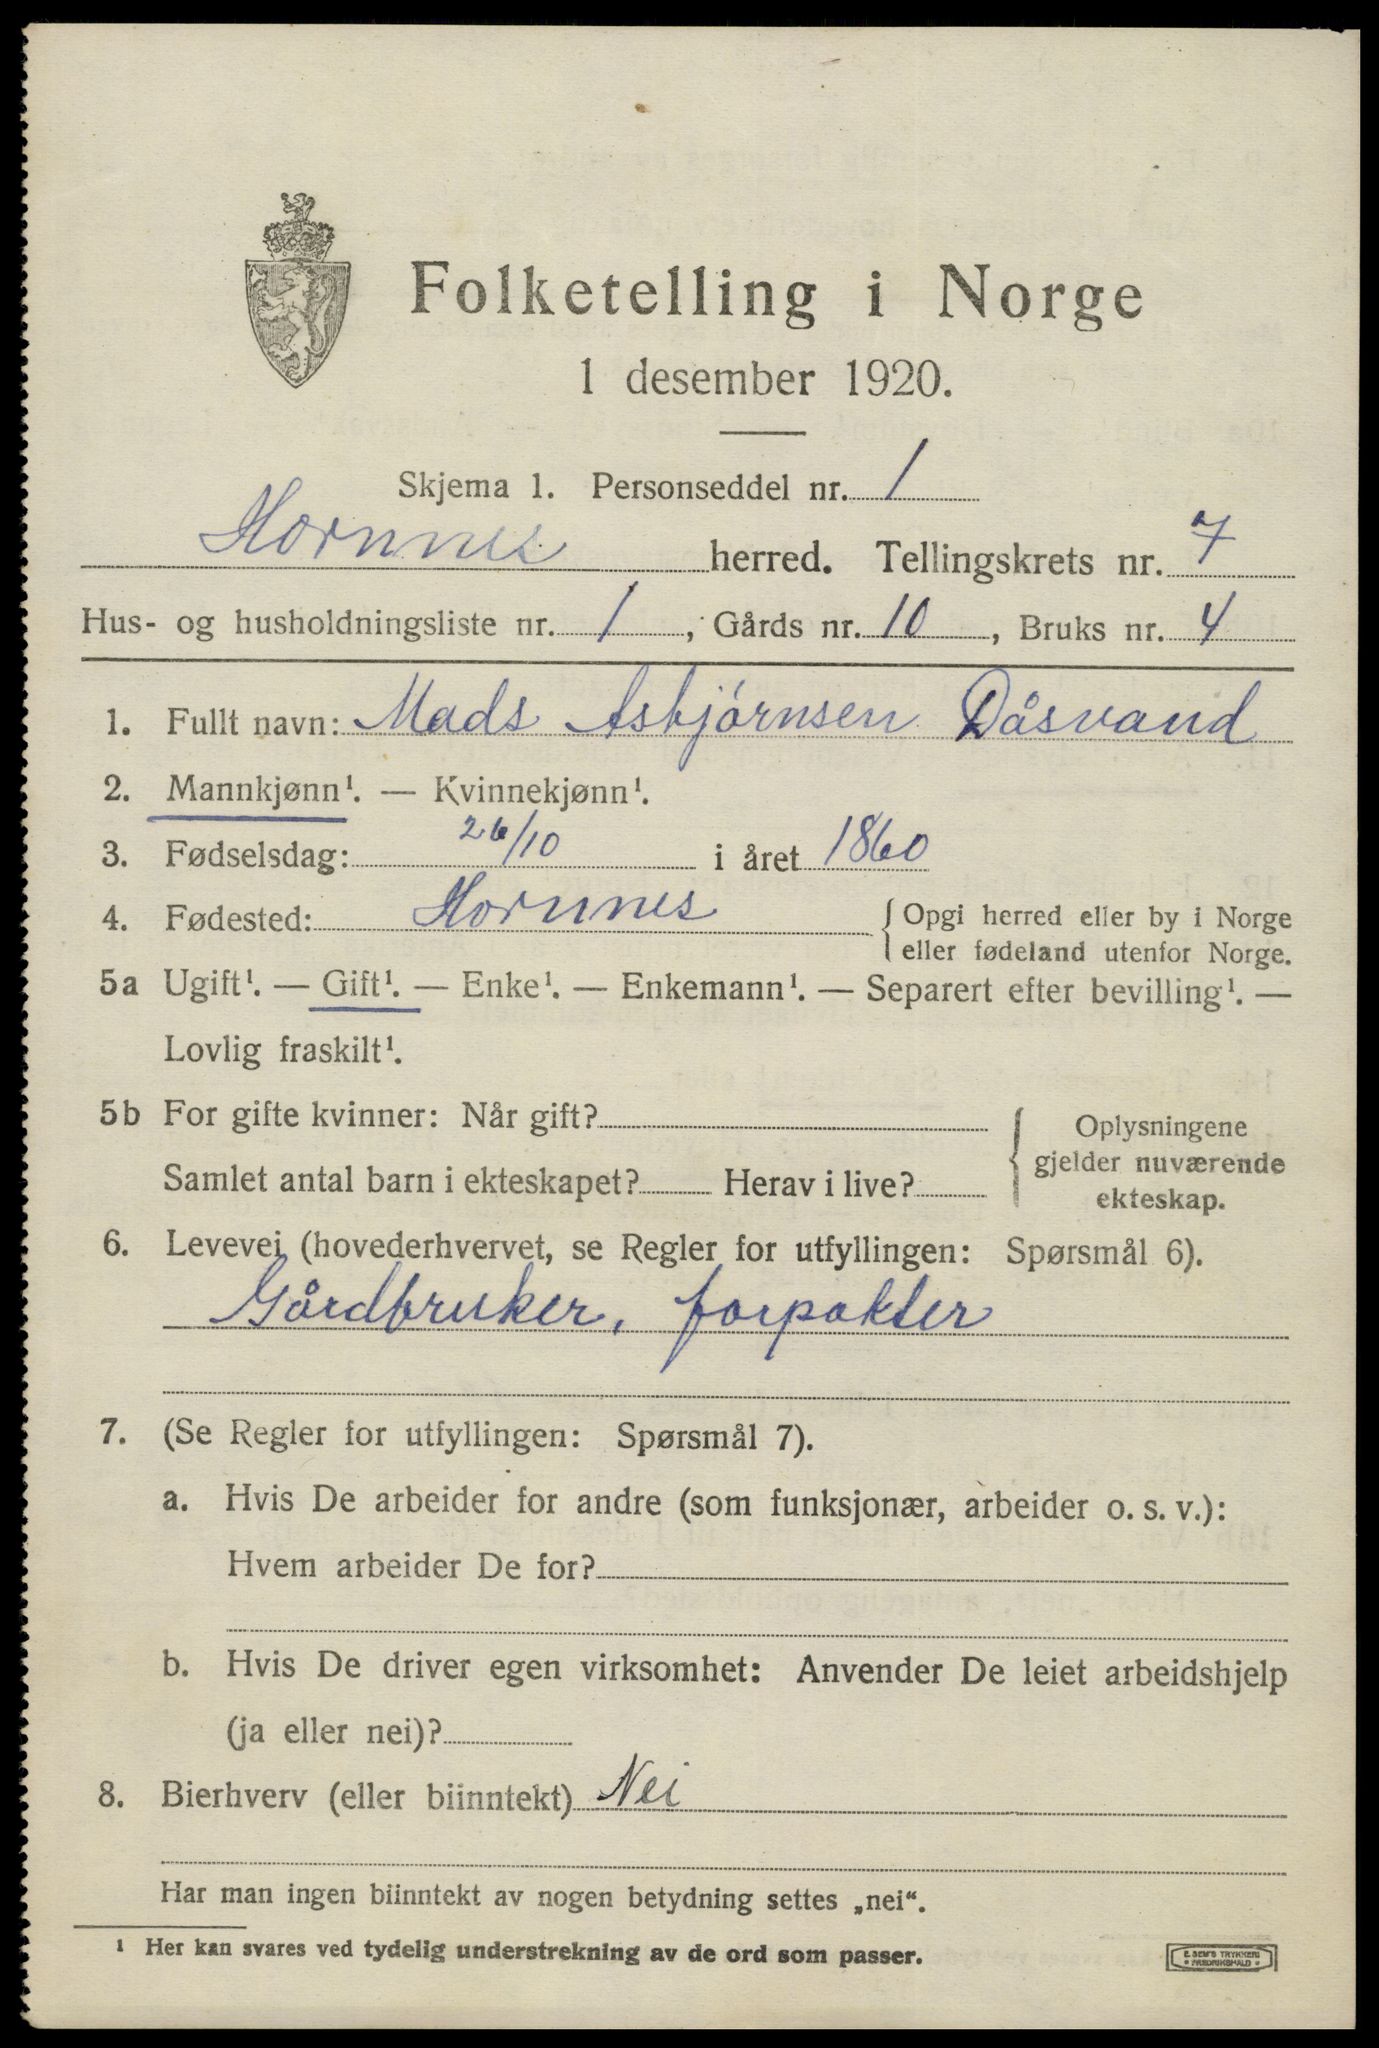 Folketelling i Norge
1 desember 1920.
Skjema 1. Personseddel nr. 1
Hornnes herred. Tellingskrets nr. 7
Hus- og husholdningsliste nr. 1, Gårds nr. 10, Bruks nr. 4
1. Fullt navn: Mads Asbjørnsen Dåsvand
2. Mannkjønn¹. — Kvinnekjønn¹.
3. Fødselsdag: 26/10 i året 1860
4. Fødested: Hornnes { Opgi herred eller by i Norge
eller fødeland utenfor Norge.
5a Ugift¹. — Gift¹. — Enke¹. — Enkemann¹. — Separert efter bevilling¹. —
Lovlig fraskilt¹.
5b For gifte kvinner: Når gift?
Samlet antal barn i ekteskapet? Herav i live?
{ Oplysningene
gjelder nuværende
ekteskap.
6. Levevei (hovederhvervet, se Regler for utfyllingen: Spørsmål 6).
Gårdbruker, forpakter
7. (Se Regler for utfyllingen: Spørsmål 7).
a. Hvis De arbeider for andre (som funksjonær, arbeider o. s. v.):
Hvem arbeider De for?
b. Hvis De driver egen virksomhet: Anvender De leiet arbeidshjelp
(ja eller nei)?
8. Bierhverv (eller biinntekt) Nei
Har man ingen biinntekt av nogen betydning settes „nei“.
¹ Her kan svares ved tydelig understrekning av de ord som passer.
E. SEM'S TRYKKERI
FREDRIKSHALD